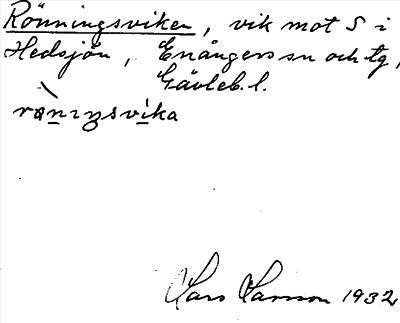 Rönningsviken, vik mot S i
Hedsjön, Enångers sn och tg,
Gävleb. l.
rønıŋsvika
Lars Larsson 1932